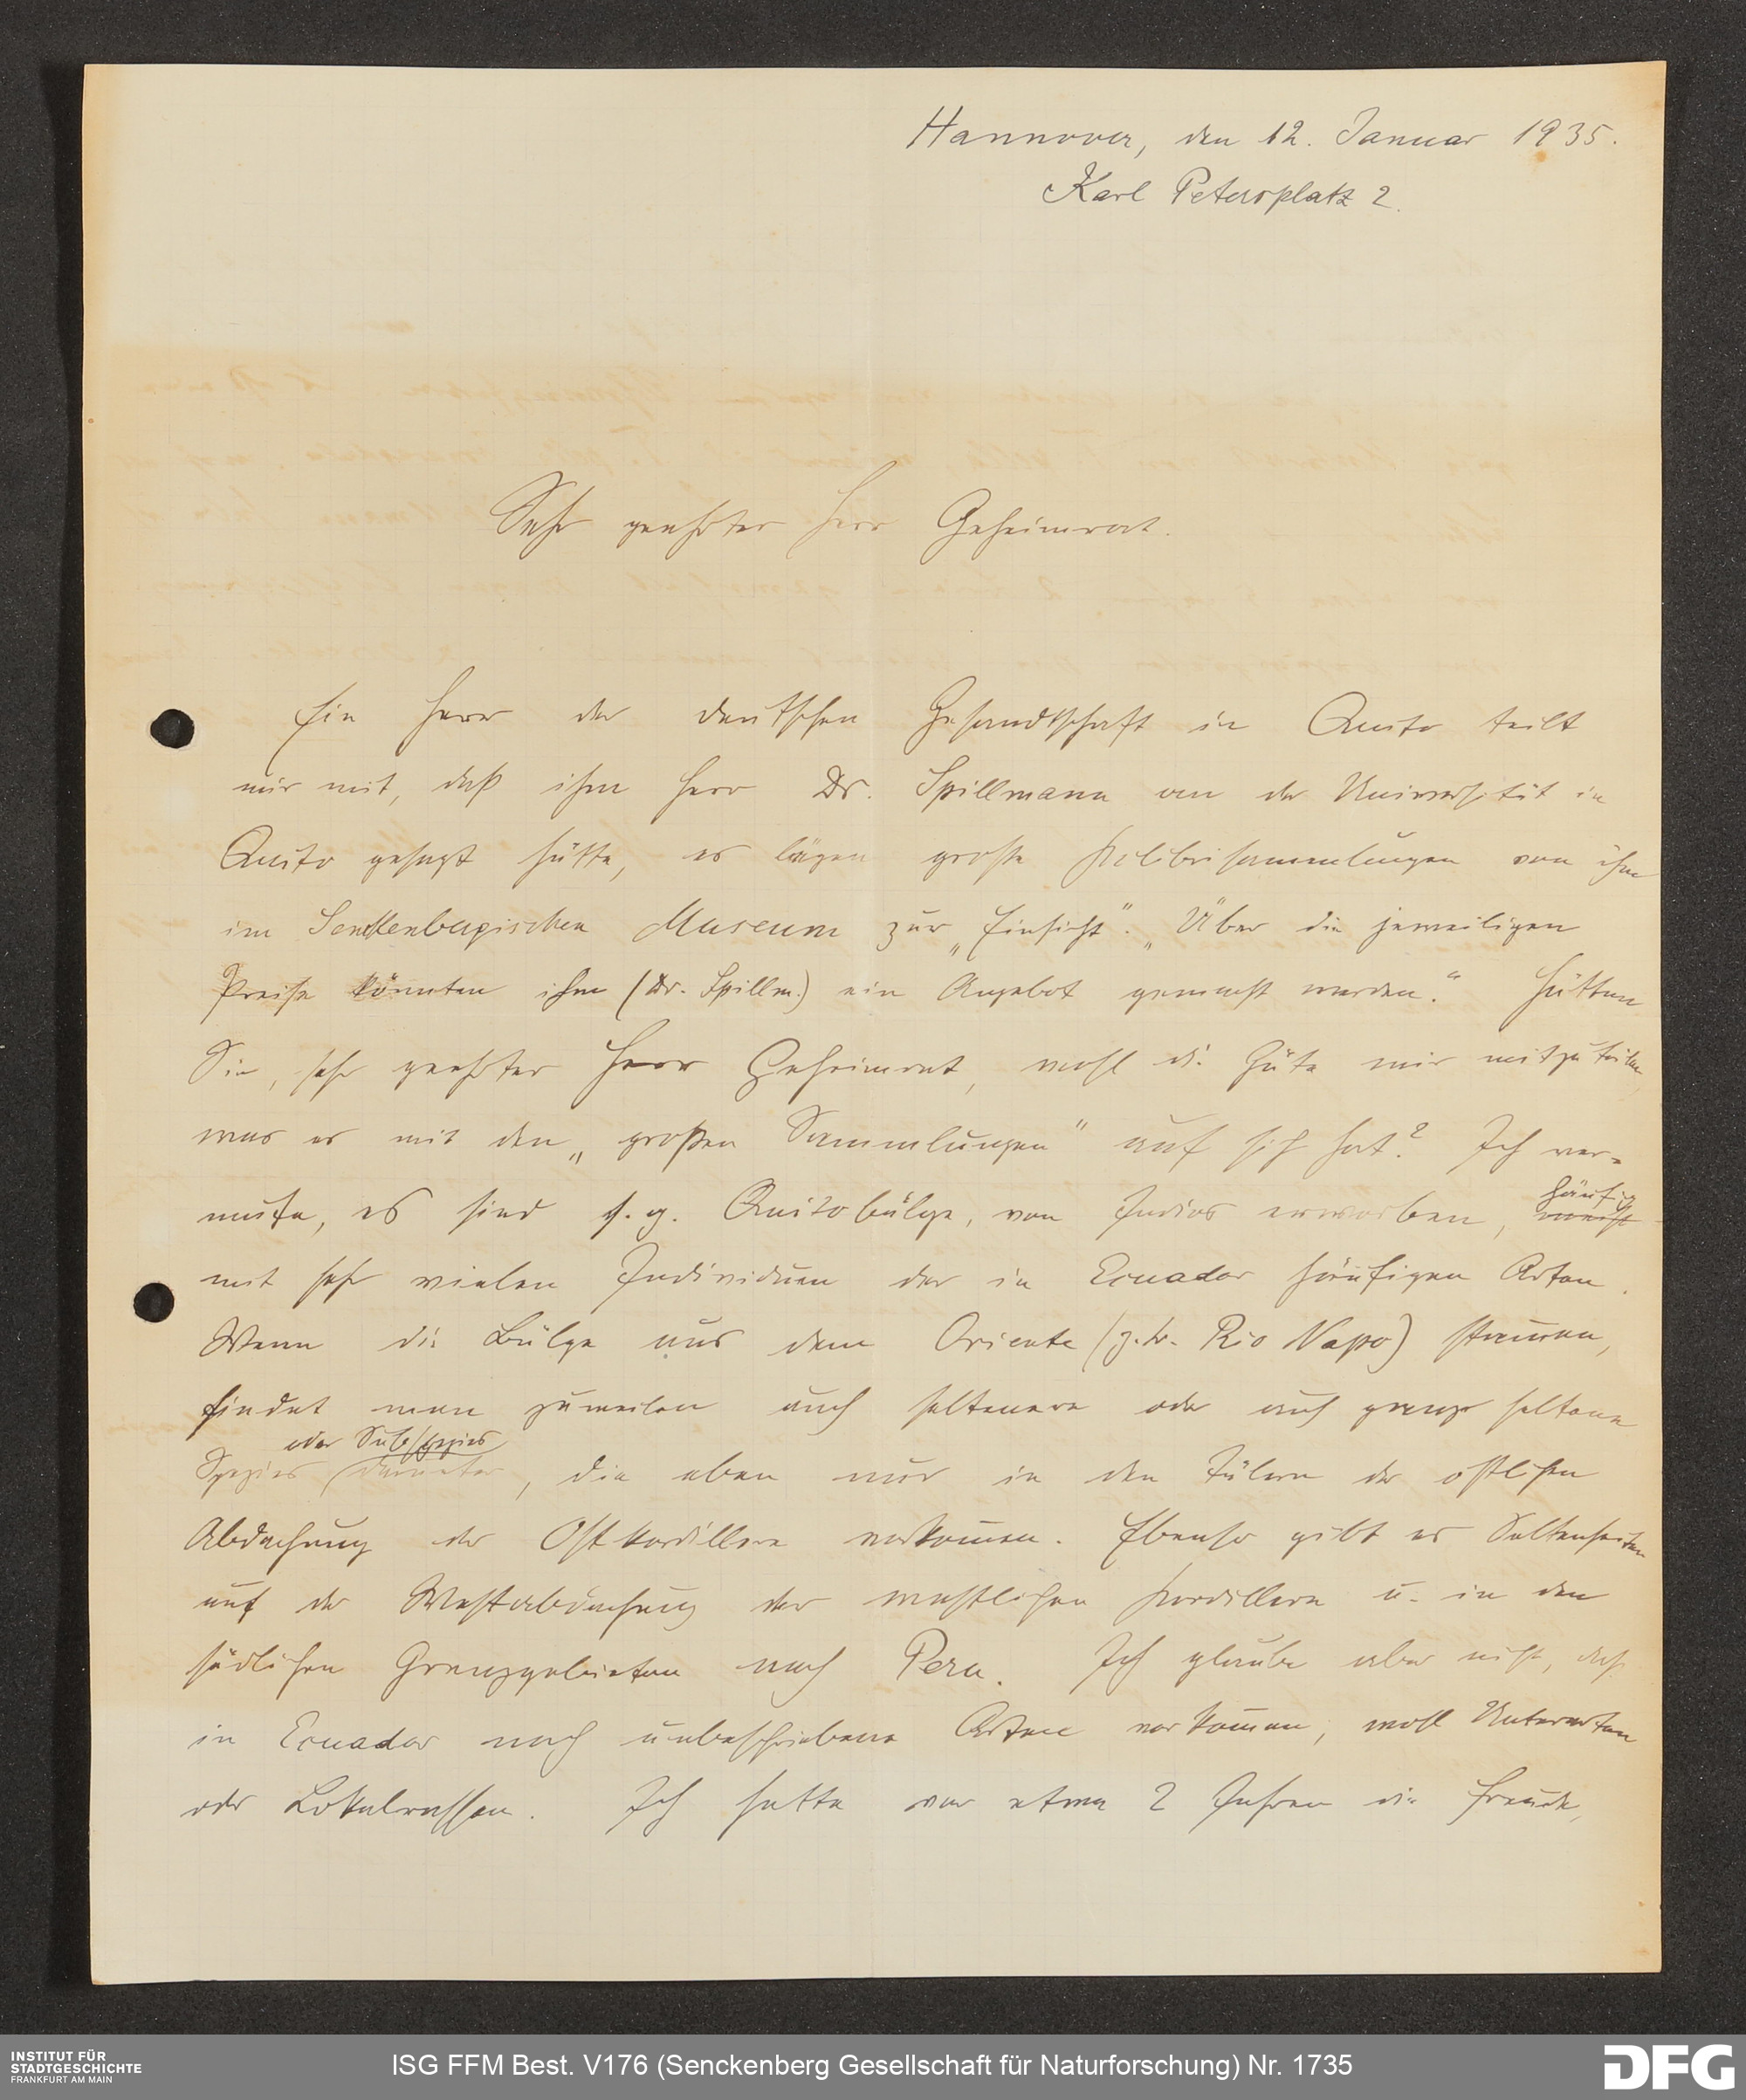 Hannover, den 12. Januar 1935.
Karl Petersplatz 2.
Sehr geehrter Herr Geheimrat.
Ein Herr der deutschen Gesandtschaft in Quito teilt
mir mit, daß ihm Herr Dr. Spillmann von der Universität in
Quito gesagt hätte, es lägen große Kolibrisammlungen von ihm
im Senckenbergischen Museum zur „Einsicht". „Über die jeweiligen
Preise könnten ihm (Dr. Spillm.) ein Angebot gemacht werden." Hätten
Sie, sehr geehrter Herr Geheimrat, wohl die Güte mir mitzuteilen,
was es mit den „großen Sammlungen" auf sich hat? Ich ver-
mute, es sind s. g. Quitobälge, von Indios erworben, häufig meist
mit sehr vielen Individuen der in Ecuador häufigen Arten.
Wenn die Bälge aus dem Oriente (z. B. Rio Napo) stammen,
findet man zuweilen auch seltenere oder auch ganz seltene
oder Subspezies
Spezies darunter, die eben nur in den Tälern der östlichen
Abdachung der Ostkordillere vorkommen. Ebenso gibt es Seltenheiten
auf der Westabdachung der westlichen Kordillere u. in den
südlichen Grenzgebieten nach Peru. Ich glaube aber nicht, daß
in Ecuador noch unbeschriebene Arten vorkommen, wohl Unterarten
oder Lokalrassen. Ich hatte vor etwa 2 Jahren die Freude,
INSTITUT FÜR
STADTGESCHICHTE
FRANKFURT AM MAIN
ISG FFM Best. V176 (Senckenberg Gesellschaft für Naturforschung) Nr. 1735
DFG